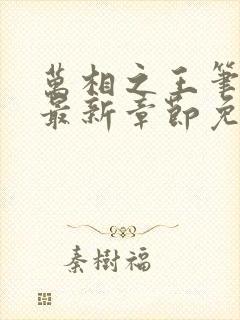 萬相之王筆
最新章節免
秦樹福